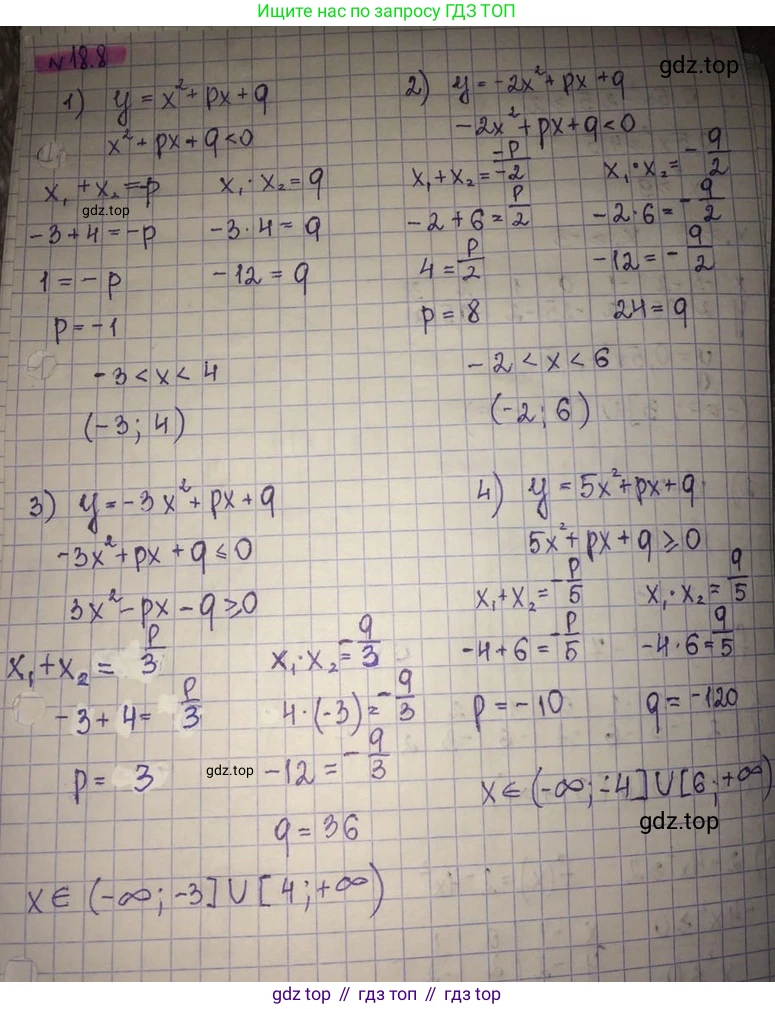 Ищите нас по запросу ГДЗ ТОП
N 18.8
gdz.top
1) y = x² + px + q
x² + px + q < 0
x₁ + x₂ = -p   x₁ · x₂ = q
gdz.top
-3 + 4 = -p   -3 · 4 = q
1 = -p   -12 = q
p = -1
-3 < x < 4
(-3; 4)
2) y = -2x² + px + q
-2x² + px + q < 0
x₁ + x₂ = -p/-2   x₁ · x₂ = -q/2
-2 + 6 = p/2   -2 · 6 = -q/2
4 = p/2   -12 = -q/2
p = 8   24 = q
-2 < x < 6
(-2; 6)
3) y = -3x² + px + q
-3x² + px + q ≤ 0
3x² - px - q ≥ 0
x₁ + x₂ = p/3   x₁ · x₂ = -q/3
-3 + 4 = p/3   4 · (-3) = -q/3
p = 3   gdz.top   -12 = -q/3
q = 36
x ∈ (-∞; -3] ∪ [4; +∞)
4) y = 5x² + px + q
5x² + px + q ≥ 0
x₁ + x₂ = -p/5   x₁ · x₂ = q/5
-4 + 6 = -p/5   -4 · 6 = q/5
p = -10   q = -120
x ∈ (-∞; -4] ∪ [6; +∞)
gdz.top
gdz top // гдз топ // gdz top